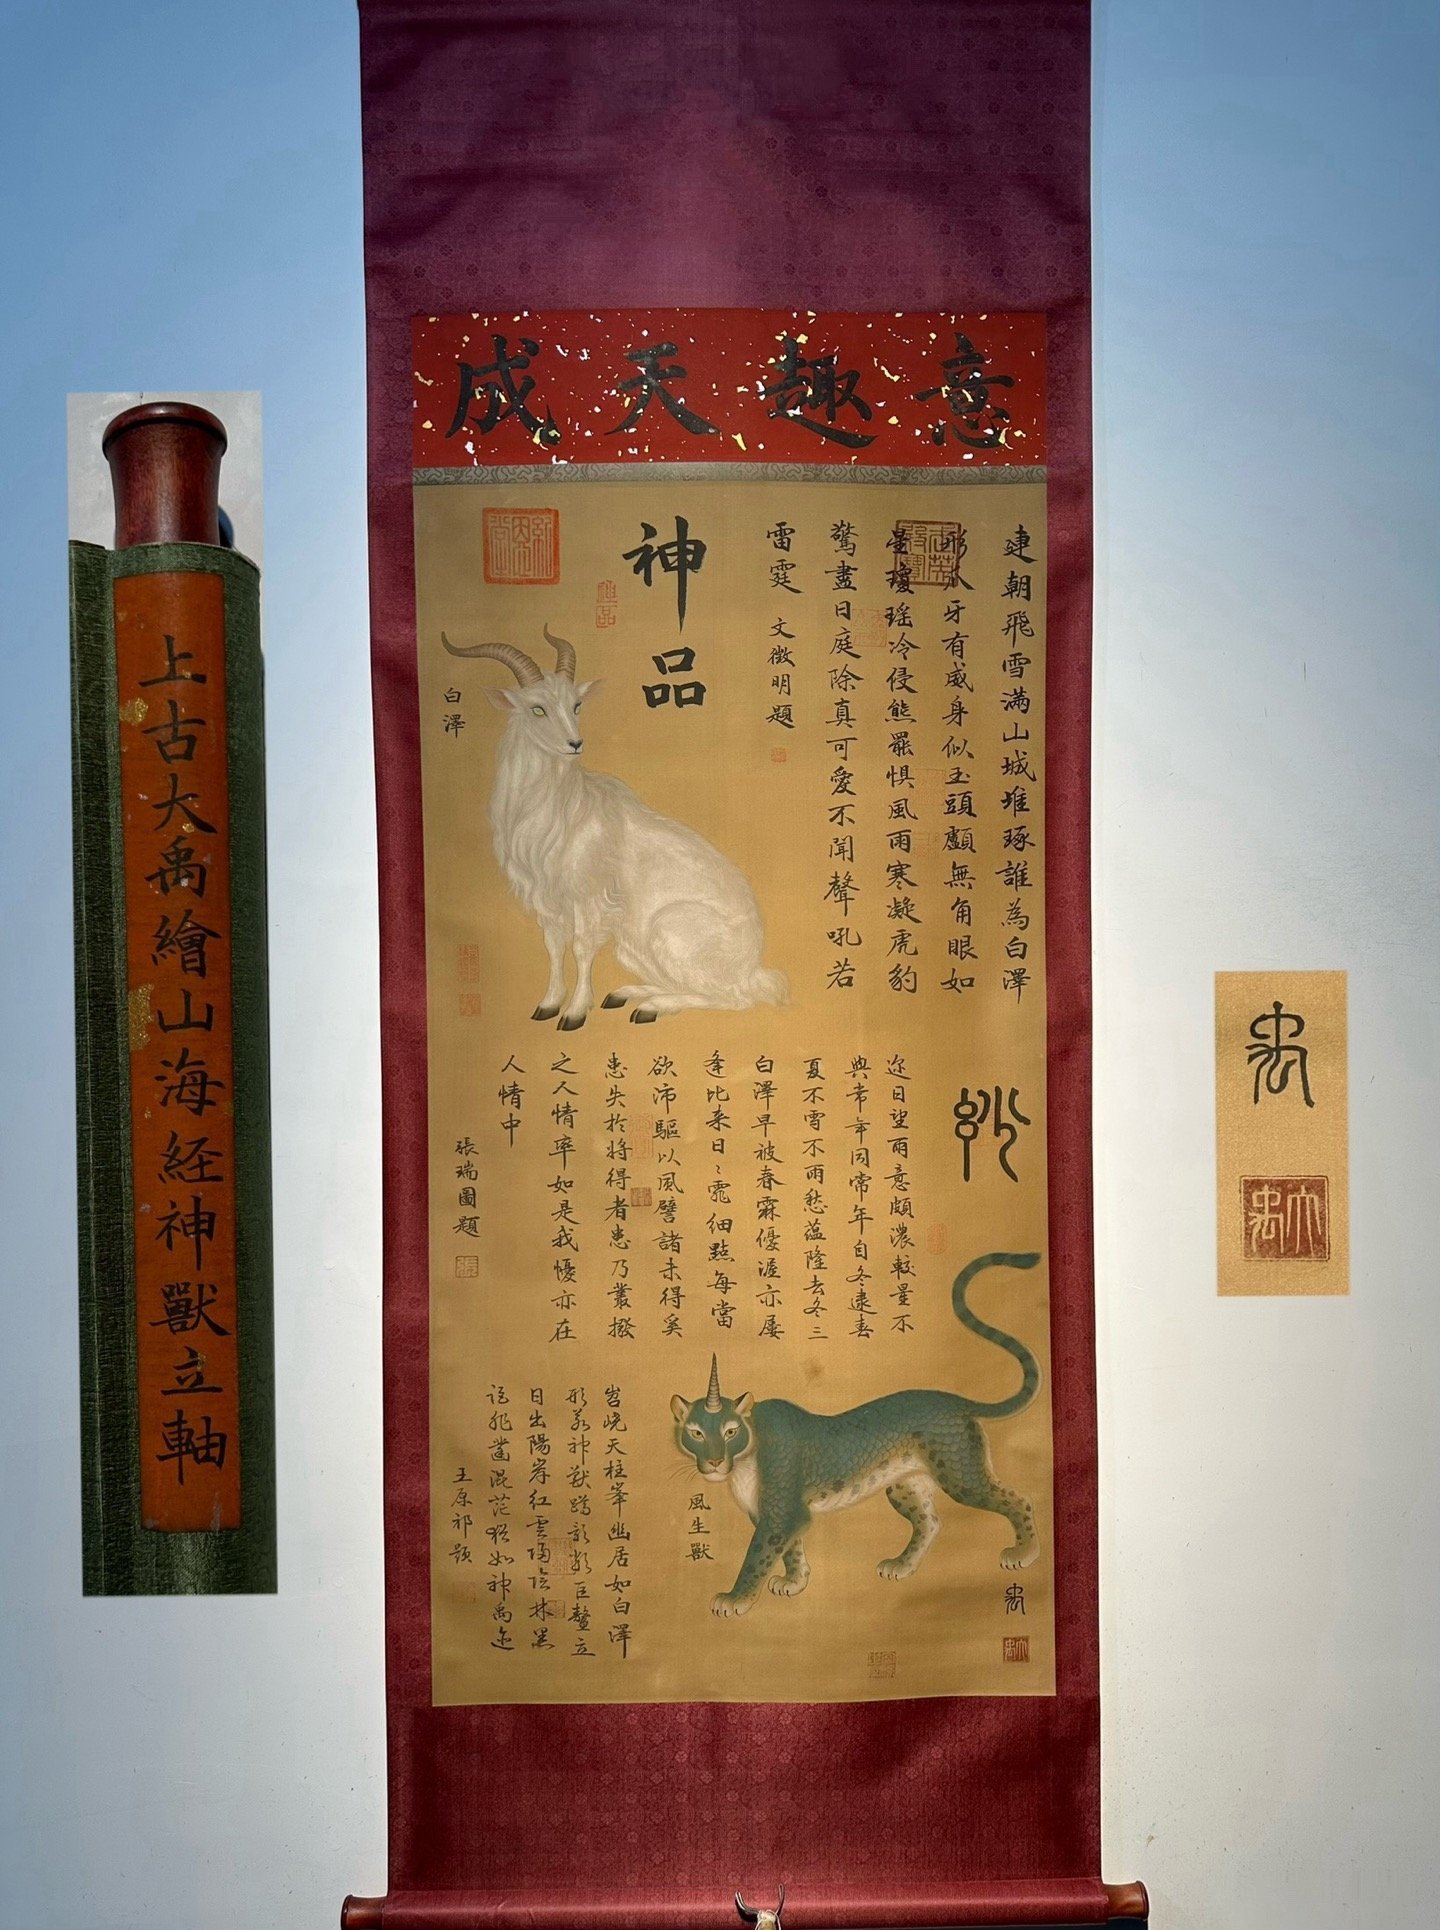 意趣天成
上古大禹繪山海経神獸立軸
神品
連朝飛雪滿山城堆琢誰為白澤
形爪牙有威身似玉頭顱無角眼如
星瓊瑤冷侵熊羆惧風雨寒凝虎豹
驚盡日庭除真可愛不聞聲吼若
雷霆
文徵明題
白澤
迩日望雨意頗濃較量不
與常年同常年自冬逮春
夏不雪不雨愁蕴隆去冬三
白澤早被春霖優渥亦屡
逢比来日〻霏細點每當
欲沛驅以風譬諸未得奚
患失於將得者患乃叢撥
之人情率如是我懮亦在
人情中
張瑞圖題
岧峣天柱峯幽居如白澤
形若神獸蹲影類巨鼇立
日出陽岸红雲陽陰林黑
詎非鑿混茫猶如神禹迹
王原祁題
風生獸
禹
大禹
禹
大禹